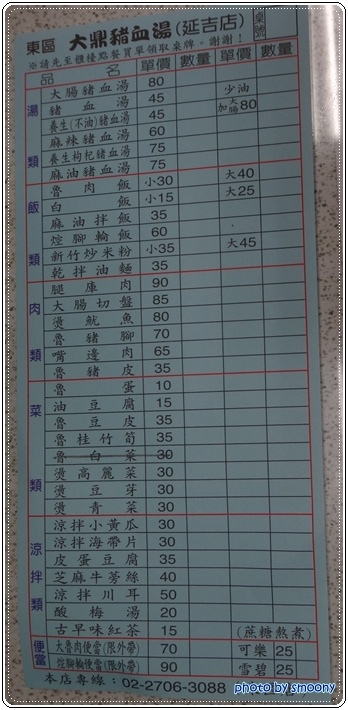 東區 大鼎豬血湯(延吉店) 桌號
※請先至櫃檯點餐買單領取桌牌。謝謝!
品名 單價 數量 單價 數量
湯類
大腸豬血湯 80
豬血湯 45 少油加大腸80
養生(不油)豬血湯 45
麻辣豬血湯 60
養生枸杞豬血湯 75
麻油豬血湯 75
飯類
魯肉飯 小30 大40
白飯 小15 大25
麻油拌飯 35
焢腳輪飯 60
新竹炒米粉 小35 大45
乾拌油麵 35
肉類
腿庫肉 90
大腸切盤 85
燙魷魚 80
魯豬腳 70
嘴邊肉 65
魯豬皮 35
菜類
魯蛋 10
油豆腐 15
魯豆皮 35
魯桂竹筍 35
魯白菜 30
燙高麗菜 30
燙豆芽 30
燙青菜 30
涼拌類
涼拌小黃瓜 30
涼拌海帶片 30
皮蛋豆腐 35
芝麻牛蒡絲 40
涼拌川耳 50
酸梅湯 20
古早味紅茶 15 (蔗糖熬煮)
便當
大魯肉便當(限外帶) 70 可樂 25
焢腳輪便當(限外帶) 90 雪碧 25
本店專線:02-2706-3088
photo by smoony